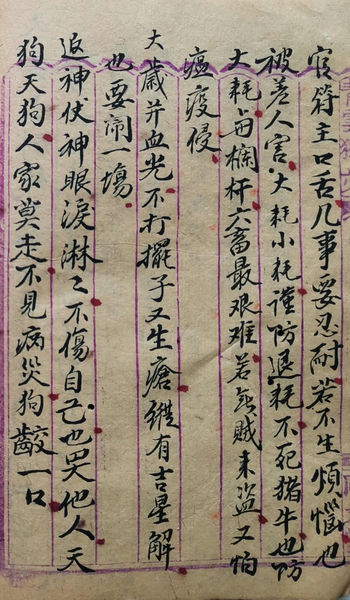 官符主口舌几事要忍耐若不生煩惱也
被差人害大耗小耗謹防退耗不死猪牛也防
大耗与欄杆六畜最艰难若無賊来盗又怕
瘟疫侵
大歲并血光不打擺子又生瘡縱有吉星解
也要鬧一塲
返神伏神眼淚淋々不傷自己也哭他人天
狗天狗人家莫走不見病災狗齩一口